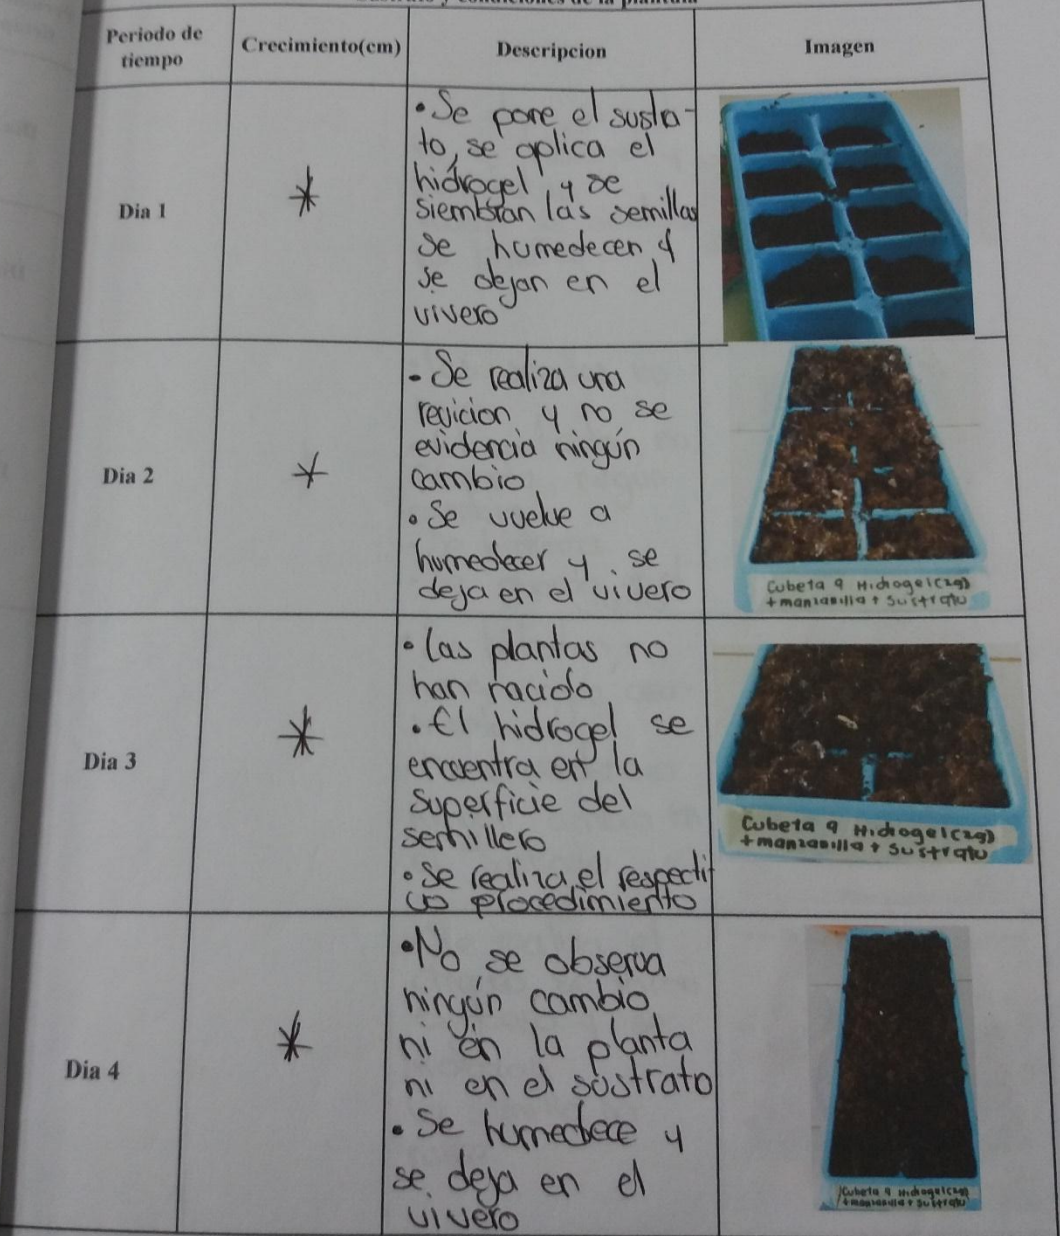 Periodo de
tiempo
Crecimiento(cm)
Descripcion
Imagen
Dia 1
*
• Se pone el sustra-
to, se aplica el
hidrogel, y se
siembran las semillas
se humedecen y
se dejan en el
vivero
Dia 2
*
- Se realiza una
revicion y no se
evidencia ningún
cambio
• Se vuelve a
humedecer y se
deja en el vivero
Cubeta 9 Hidrogel(2g)
+manzanilla + Sustrato
Dia 3
*
• las plantas no
han nacido
• El hidrogel se
encuentra en la
superficie del
semillero
• Se realiza el respecti
vo procedimiento
Cubeta 9 Hidrogel(2g)
+manzanilla + Sustrato
Dia 4
*
• No se observa
ningún cambio
ni en la planta
ni en el sustrato
• Se humedece y
se deja en el
vivero
Cubeta 9 Hidrogel(2g)
+manzanilla + Sustrato